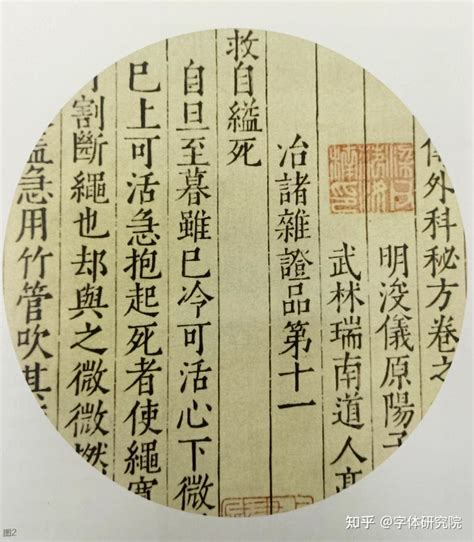 外科秘方卷之
明浚儀原陽子
武林瑞南道人高
治諸雜證品第十一
救自縊死
自旦至暮雖巳冷可活心下微
巳上可活急抱起死者使繩寬
割斷繩也却與之微微撚
急用竹管吹其
图2
知乎 @字体研究院